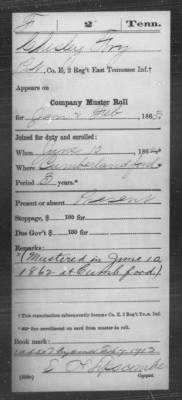 F 2 Tenn.
Chesley Fry
Pvt, Co. E, 2 Reg't East Tennessee Inf.†
Appears on
Company Muster Roll
for Jan & Feb, 1863
Joined for duty and enrolled:
When June 10, 1862
Where Cumberland Ford
Period 3 years.*
Present or absent Present
Stoppage, $ 100 for
Due Gov't $ 100 for
Remarks:
(Mustered in June 10
1862 at Cumb. ford)
† This organization subsequently became Co. E, 2 Reg't Tenn. Inf.
enrollment on card from muster in roll.
Book mark:
1912